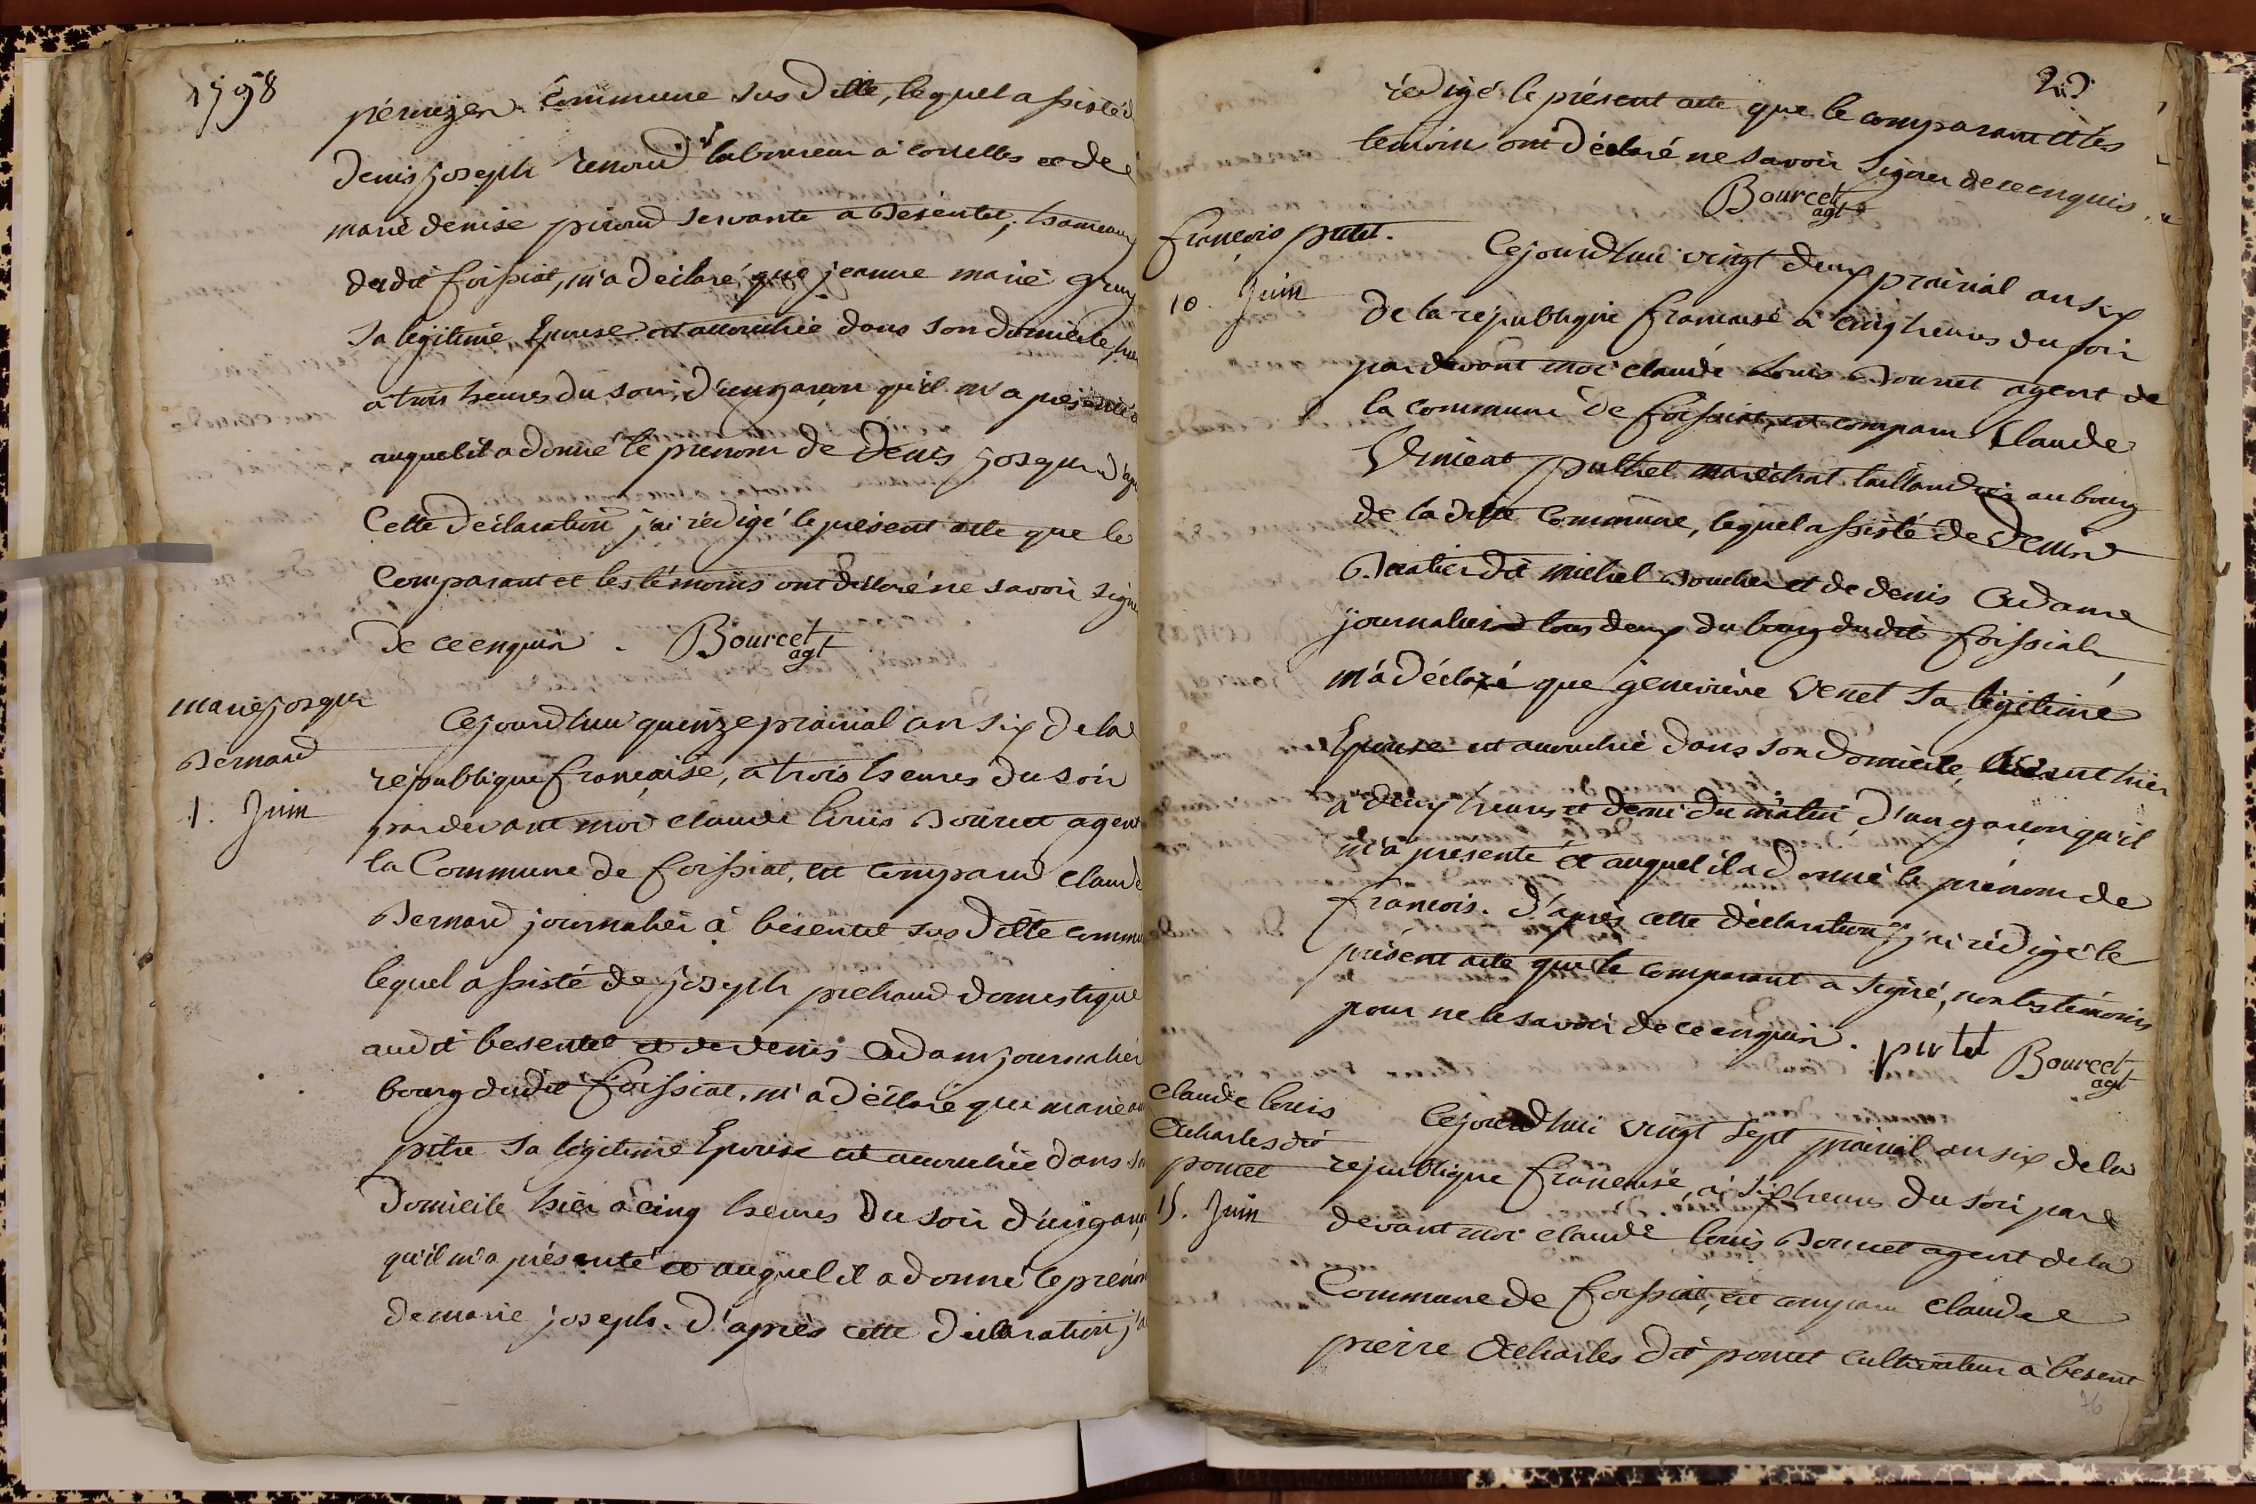 1798
péruizer commune sus ditte, lequel assisté d
denis joseph renoud laboureur à corcelles et de
marie denise piroud servante a besentet, hameaux
dudit foissiat, m'a déclaré que jeanne marie
sa légitime Epouse est accouchée dans son domicile
a trois heures du soir, d'un garçon qu'il m'a présenté
auquel il a donné le prenom de Denis joseph d'apr
Cette déclaration j'ai rédigé le présent acte que le
comparant et les témoins ont déclaré ne savoir signe
de ce enquis. Bourcet
agt
marie joseph
Bernard
1. Juin
Cejourdhui quinze prairial an six de la
république française, à trois heures du soir
pardevant moi claude louis Bourcet agent
la Commune de foissiat, est comparu claude
Bernard journalier à besentet sus ditte commu
lequel assisté de joseph pichaud domestique
audit besentet et de denis Adam journalier
bourg dudit foissiat, m'a déclaré que marie
pitre sa légitime Epouse est accouchée dans s
domicile hier à cinq heures du soir d'un garç
qu'il m'a présenté et auquel il a donné le prénom
de marie joseph. D'après cette déclaration j'a
23
rédigé le présent acte que le comparant et les
temoins ont déclaré ne savoir signer de ce enquis.
Bourcet
agt
françois putet.
10. Juin
Cejourdhui vingt deux prairial an six
de la république francaise à cinq heures du soir
pardevant moi claude Louis Bourcet agent de
la commune de foissiat, est comparu Claude
Vincent puthet maréchal taillandier au bourg
de la ditte commune, lequel assisté de Denis
dit michel Boucher et de denis Adam
journaliers tous deux du bourg dudit foissiat
m'a déclaré que geneviève Venet sa légitime
Epouse est accouchée dans son domicile, hier
à deux heures et demi du matin, d'un garçon qu'il
m'a présenté et auquel il a donné le prénom de
françois. D'après cette déclaration j'ai rédigé le
présent acte que le comparant a signé, non les témoins
pour ne le savoir de ce enquis. putet Bourcet
agt
Claude louis
Acharles dit
poncet
15. Juin
Cejourdhui vingt sept prairial an six de la
république francaise, à six heures du soir par
devant moi claude louis Bourcet agent de la
Commune de foissiat, est comparu claude
pierre Acharles dit poncet cultivateur à besent
76